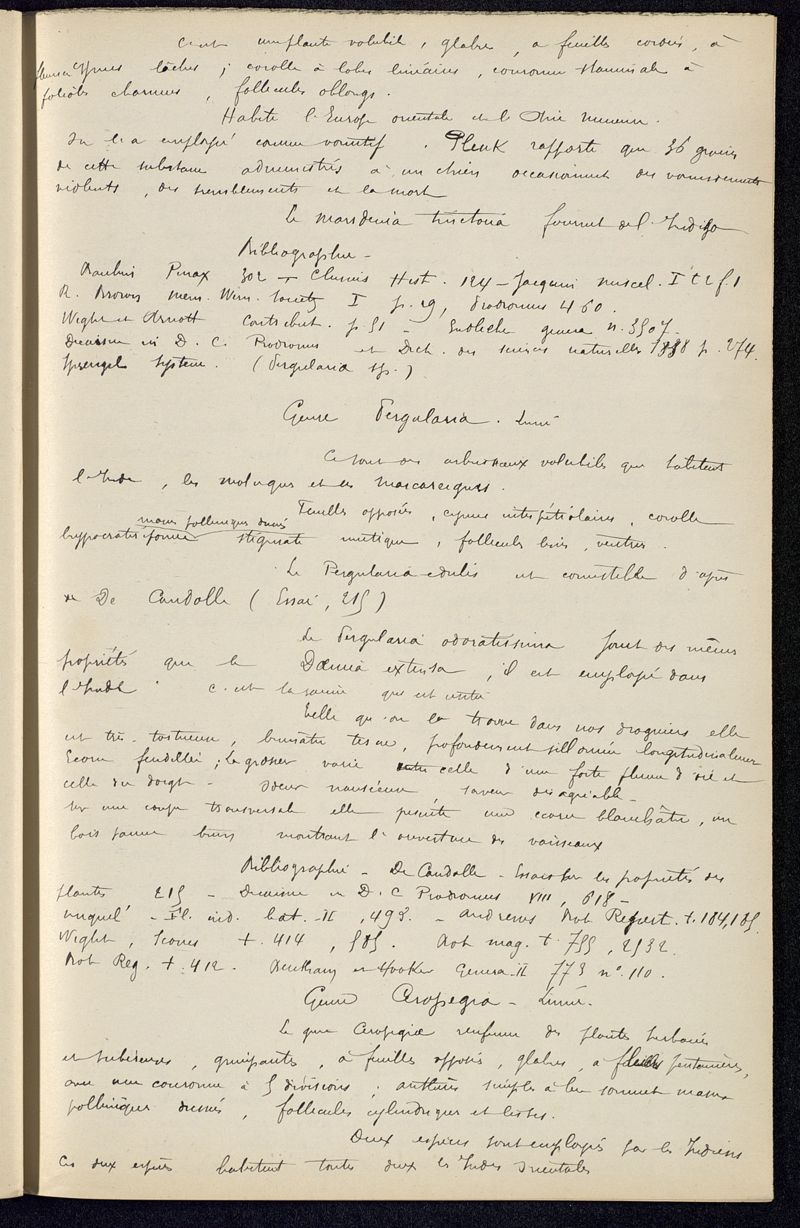 C'est une plante volubile, glabre, a feuilles cordées, à
fleurs en cymes lâches ; corolle à lobes linéaires, couronne staminale à
folioles charnues, follicules oblongs.
Habite l'Europe orientale et l'Asie mineure.
On l'a employé comme vomitif. Plenk rapporte que 36 grains
de cette substance administrés à un chien occasionnent des vomissements
violents, des tremblements et la mort
Le marsdenia tinctoria fournit de l'Indigo
Bibliographie -
Bauhin Pinax 302 - Clusius Hist. 124 - Jacquin miscel. I t 2 f. 1
R. Brown mem. Wern. Society I p. 29, Prodromus 460.
Wight et Arnott Contribut. p. 51 - Endlicher genera n. 3507 -
Decaisne in D. C. Prodromus et Dict. des sciences naturelles 1838 p. 274.
Sprengel System. (Pergularia sp.)
Genre Pergularia. Linné
Ce sont des arbrisseaux volubiles qui habitent
l'Inde, les moluques et les mascareignes.
Feuilles opposées, cymes interpétiolaires, corolle
masses polliniques dressées
hypocratériforme stigmate mutique, follicules lisses, ventrus.
Le Pergularia edulis est comestible d'après
De Candolle (Essai, 215)
Le Pergularia odoratissima jouit des mêmes
propriétés que le Dæmia extensa, il est employé dans
l'Inde. C'est la racine qui est usitée
Telle qu'on la trouve dans nos droguiers elle
est très-tortueuse, brunâtre terne, profondément sillonnée longitudinalement
Ecorce fendillée ; La grosseur varie entre celle d'une forte plume d'oie et
celle du doigt - odeur nauséeuse saveur désagréable -
Sur une coupe transversale elle présente une ecorce blanchâtre, un
bois jaune montrant l'ouverture des vaisseaux
Bibliographie - De Candolle - Essai sur les propriétés des
plantes 215 - Decaisne in D. C Prodromus VIII, 618 -
miquel - Fl. ind. bat. II, 493. - Andrews Bot Reposit. t. 184, 185.
Wight, Icones t. 414, 585. Bot mag. t. 755, 2532.
Bot Reg. t. 412. Bentham et Hooker Genera II 773 n° 110.
Genre Ceropegia - Linné.
Le genre Ceropegia renferme des plantes herbacées
et tubéreuses, grimpantes, à feuilles opposées, glabres, a fleurs pentamères,
avec une couronne à 5 divisions ; anthères simples à leur sommet masses
polliniques dressées, follicules cylindriques et lisses.
Deux espèces sont employées par les Indiens
Ces deux espèces habitent toutes deux les Indes Orientales